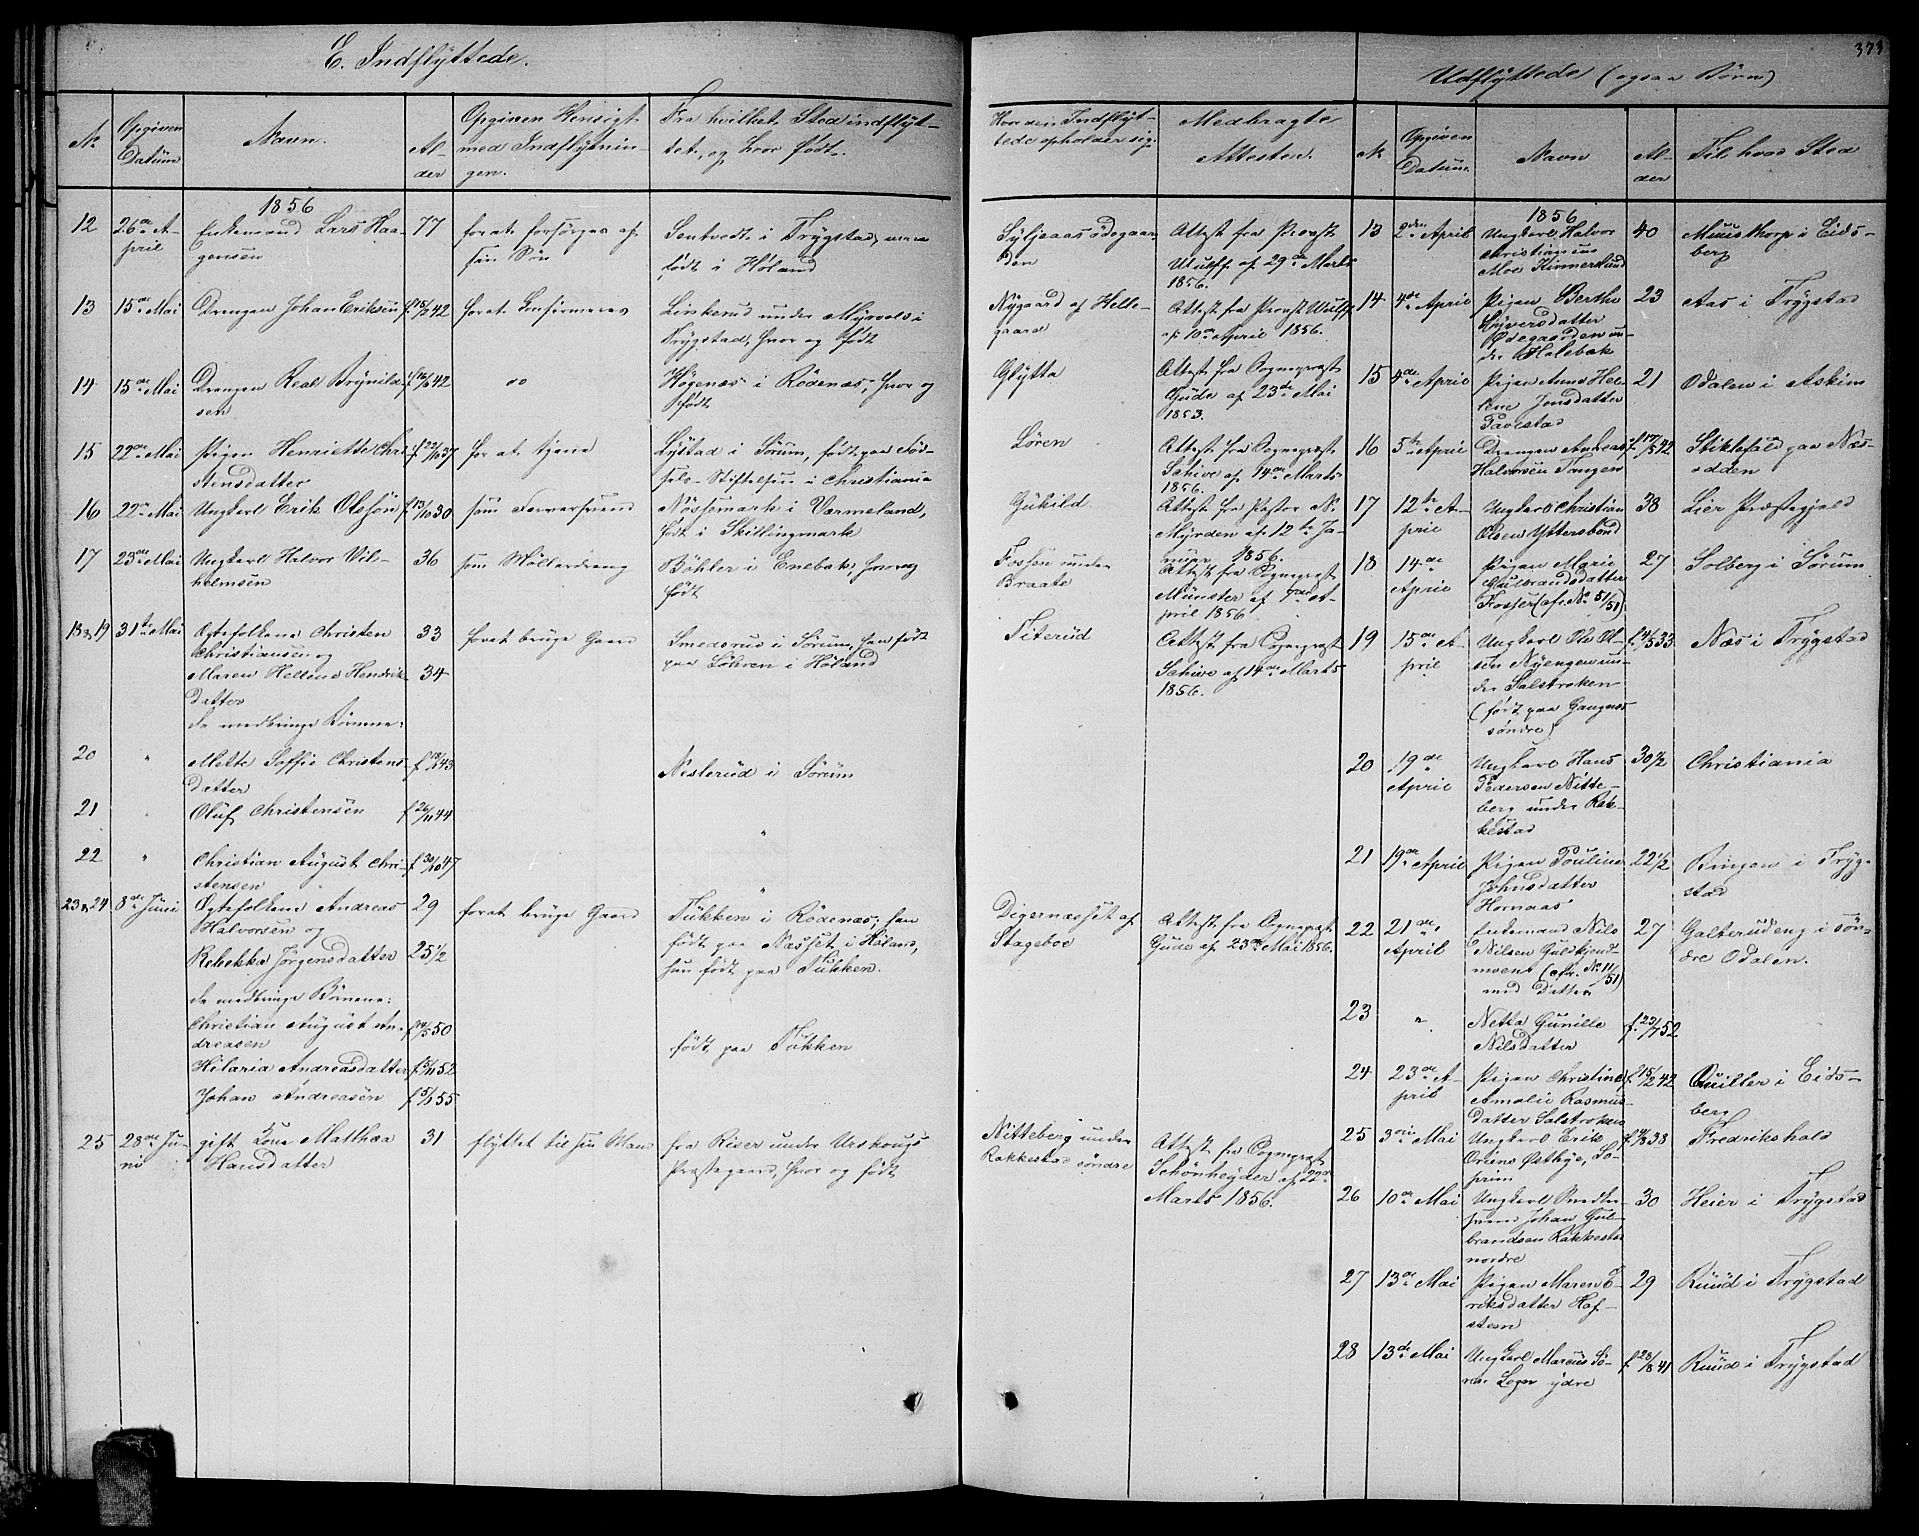 373
E. Indflyttede.
No
Opgiven
Datum
Navn.
Al-
der
Opgiven Hensigt
med Indflytnin-
gen.
Fra hvilket Sted indflyt-
tet, og hvor født.
Hvor den Indflyt-
tede opholder sig.
Medbragte
Attester.
12
26de A-
pril
1856
Enkemand Lars Haa-
gensen
77
for at forsørges af
sin Søn
Sentvedt i Trygstad, men
født i Høland
Attest fra Provst
Wulff af 29de Marts
1856.
13
15de Mai
Drengen Johan Eriksen
for at Confirmeres
Linkerud under Myrvold i
Trygstad, hvor og født
Nygaard af Helle-
gaard
Attest fra Provst Wulff
af 10de April 1856.
14
15de Mai
Drengen Real Brynild-
sen
do
Høgenæs i Rødenæs, hvor og
født
Glytta
Attest fra Sognepræst
Gude af 23de Mai
1853.
15
22de Mai
Pigen Henriette Chri-
stensdatter
f 22/10 37
for at tjene
Lystad i Sørum, født paa Fød-
sels-Stiftelsen i Christiania
Løren
Attest fra Sognepræst
Schive af 14de Marts
1856.
16
22de Mai
Ungkarl Erik Olsen
f 13/10 30
som Farversvend
Nössemark i Värmeland,
født i Skillingmark
Gukild
Attest fra Pastor N.
Myrden af 12te Ja-
nuar 1856.
17
23de Mai
Ungkarl Halvor Vil-
helmsen
36
som Møllerdreng
Bøhler i Enebak, hvor og
født
Fossen under
Braate
Attest fra Sognepræst
Münster af 7de A-
pril 1856
18 & 19
31te Mai
Ægtefolkene Christen
Christiansen og
Maren Hellene Hendriks-
Datter
de medbringe Børnene:
33
34
for at bruge Gaard
Smedsrud i Sørum, han født
paa Løhren i Høland
Titerud
Attest fra Sognepræst
Schive af 14de Marts
1856.
20
"
Mette Soffie Christens-
Datter
Neslerud i Sørum
21
"
Oluf Christensen
f 26/11 44
"
22
"
Christian August Chri-
stensen
f 30/10 47
"
23 & 24
8de Juni
Ægtefolkene Andreas
Halvorsen og
Rebekka Jørgensdatter
de medbringe Børnene:
Christian August An-
dreasen
Hilaria Andreasdatter
Johan Andreasen
29
25 1/2
f 5/11 52
f 5/1 55
for at bruge Gaard
Tukken i Rødenæs; han
født paa Næsset i Høland,
hun født paa Tukken.
født paa Tukken
Digernæsset af
Stageboe
Attest fra Sognepræst
Gude af 23de Mai 1856.
25
28de Ju-
ni
gift Kone Matthea
Hansdatter
31
flyttet til sin Mand
fra Riser under Urskougs
Præstegaard, hvor og født
Nitteberg under
Rakkestad søndre
Attest fra Sognepræst
Schönheyder af 22de
Marts 1856.
Udflyttede (ogsaa Børn)
No
Opgiven
Datum
Navn
Al-
der
Til hvad Sted
1856
13
2den April
Ungkarl Halvor
Christiansen
Moe
40
Muusthorp i Eids-
berg
14
4de April
Pigen Berthe
Syversdatter
Ødegaarden un-
der Holebæk
23
Aas i Trygstad
15
4de April
Pigen Anne Hel-
lene Jensdatter
Tavestad
21
Odalen i Askim
16
5te April
Drengen Andreas
Halvorsen Tangen
Stiklefald paa Næs-
odden
17
12te A-
pril
Ungkarl Christian
Olsen Yttersbønd
38
Lier Præstegjeld
18
14de
April
Pigen Marie
Gulbrandsdatter
Fosser (cfr. No 51/51)
27
Solberg i Sørum
19
15de A-
pril
Ungkarl Ole Ol-
sen Nyengen un-
der Salstroken
(født paa Gangnæs
søndre)
f 4/5 33
Næs i Trygstad
20
19de
April
Ungkarl Hans
Pedersen Nitte-
berg under Rak-
kestad
30 1/2
Christiania
21
19de April
Pigen Pouline
Johnsdatter
Hornaas
22 1/2
Bingen i Tryg-
stad
22
21de
April
Enkemand Nils
Nilsen Gulkjend-
moen (cfr. No 11/51)
med Datter
27
Galterudeng i søn-
dre Odalen.
23
"
Netta Gunille
Nilsdatter
f. 23/7 52
24
23de A-
pril
Pigen Christine
Amalie Rasmus-
datter Salstroken
f 15/2 42
Quiller i Eids-
berg
25
3die Mai
Ungkarl Erik
Fredrikshald
26
10de Mai
Ungkarl Smedsv-
svend Johan Gul-
brandsen Rakkestad
nordre
30
Heier i Trygstad
27
13de Mai
Pigen Maren E-
riksdatter Hof-
steen
29
Ruud i Trygstad
28
13de Mai
Ungkarl Marcus Sø-
ren Logn ydre
f. 28/8 41
Ruud i Trygstad